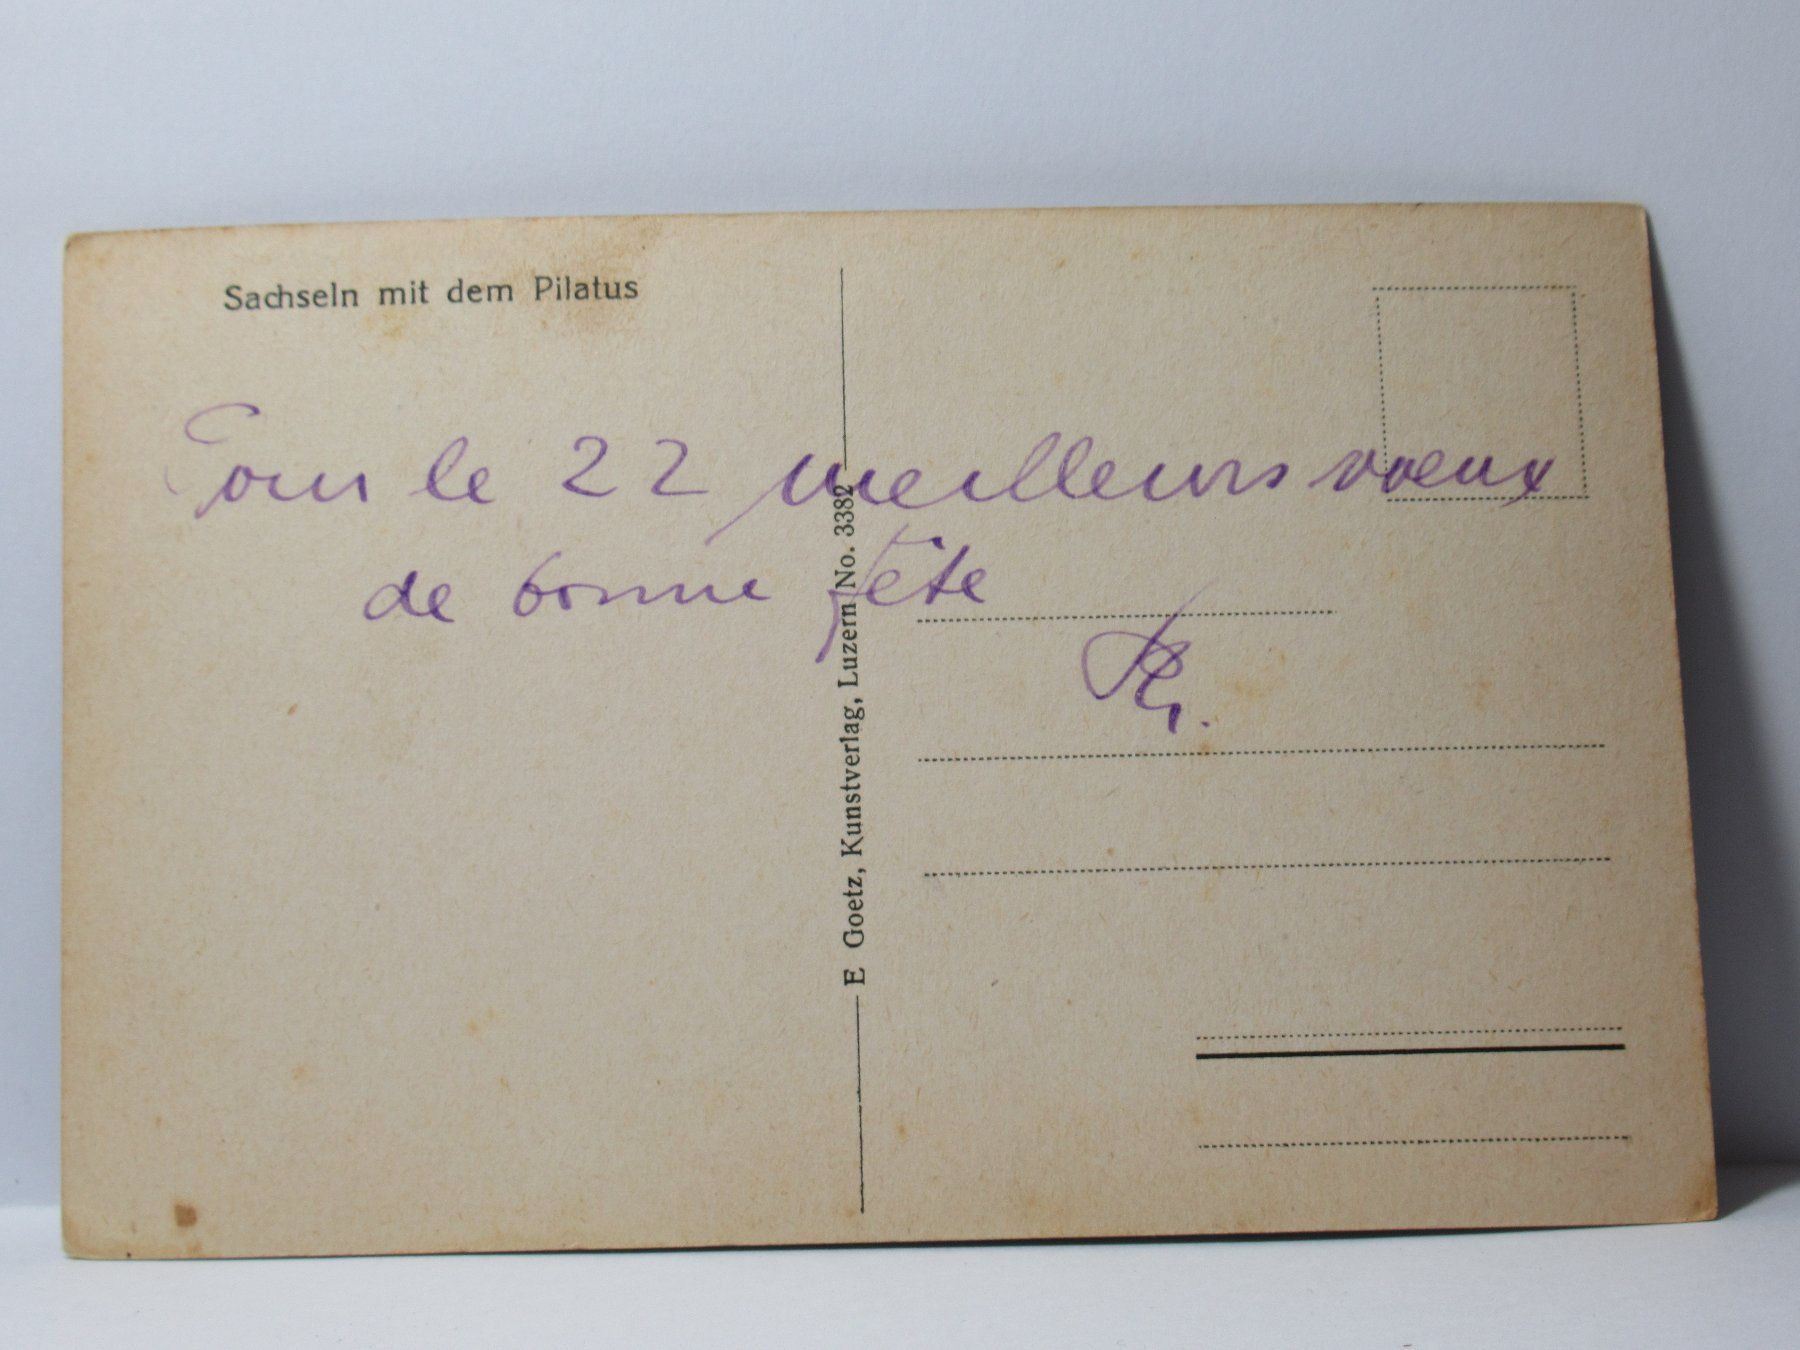 Sachseln mit dem Pilatus
Pour le 22 meilleurs voeux
de bonne fête
E Goetz, Kunstverlag, Luzern No. 3382